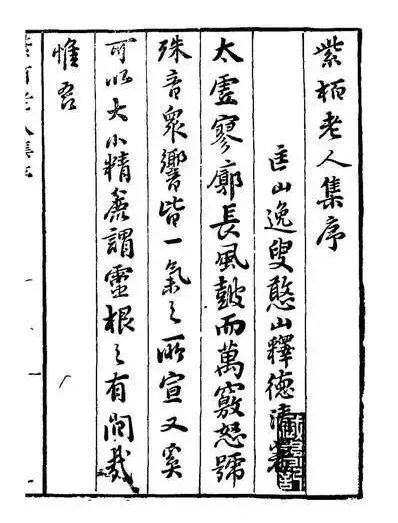 紫柏老人集序
匡山逸叟憨山釋德清
太虛寥廓長風鼓而萬竅怒號
殊音眾響皆一氣之所宣又奚
可以大小精麤謂靈根之有間哉
惟吾